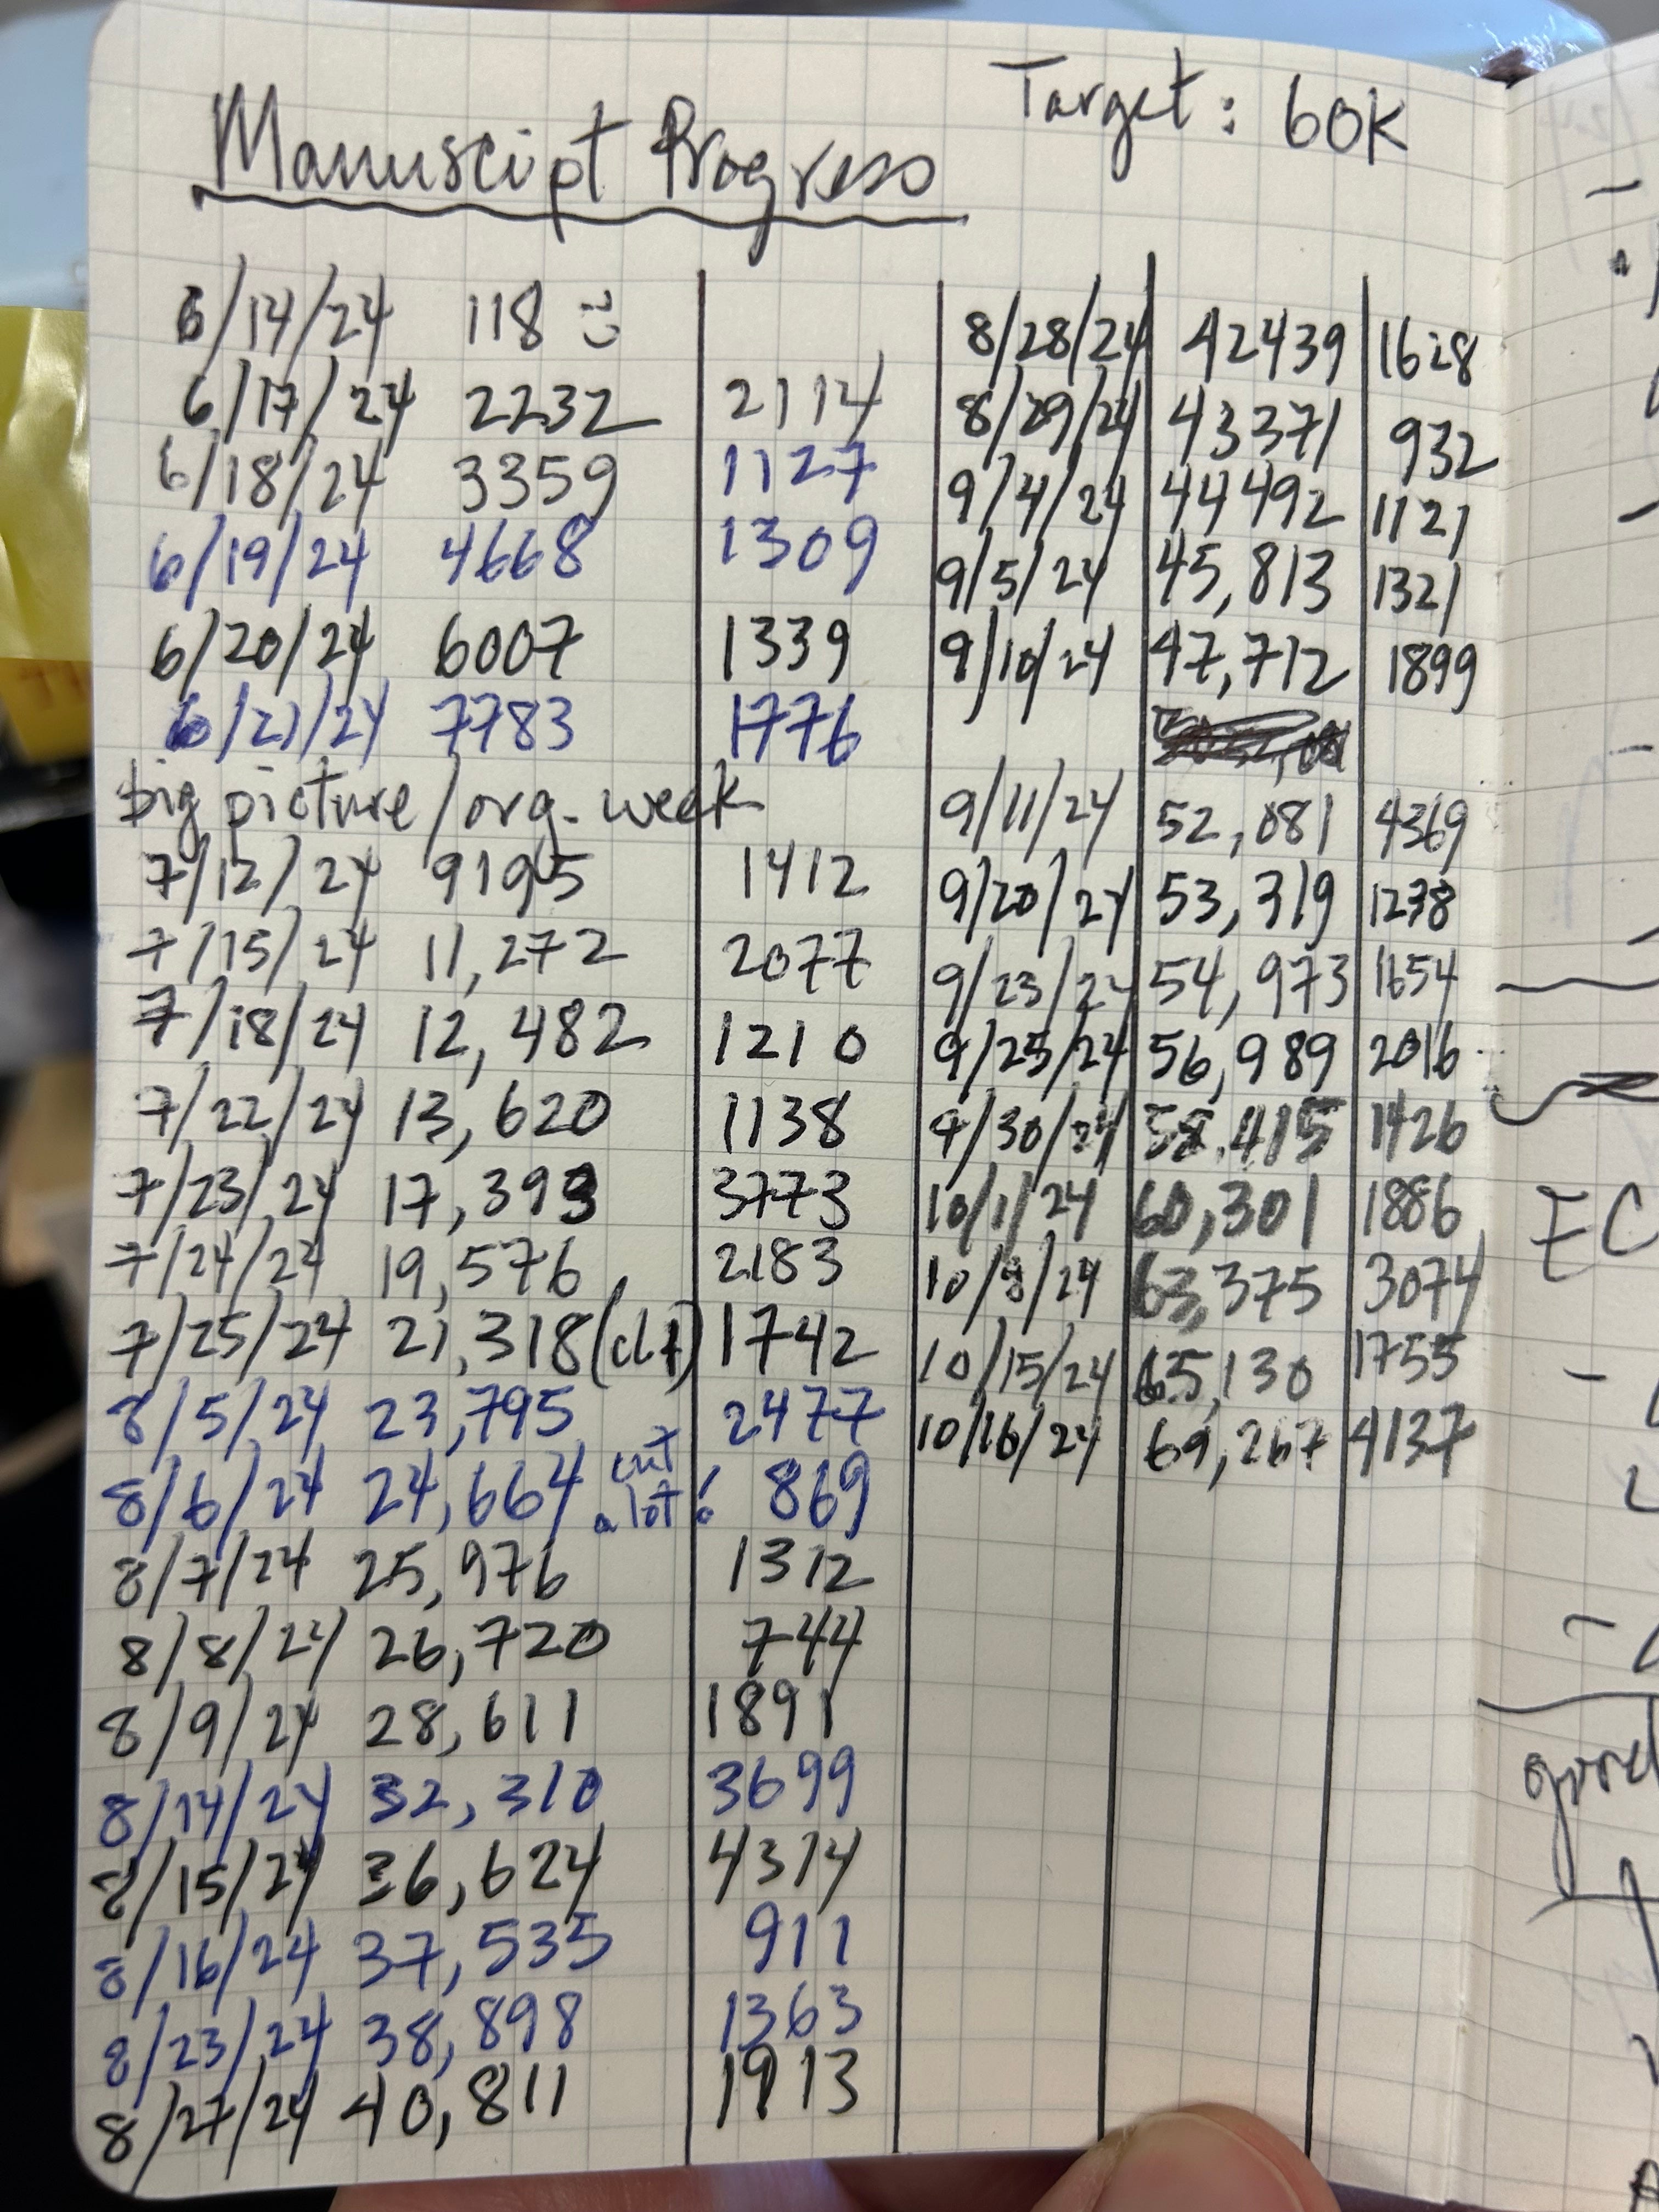 Manuscript Progress
Target: 60K
6/14/24 118
6/17/24 2232 2114
6/18/24 3359 1127
6/19/24 4668 1309
6/20/24 6007 1339
6/21/24 7783 1776
big picture/org. week
7/12/24 9195 1412
7/15/24 11,272 2077
7/18/24 12,482 1210
7/22/24 13,620 1138
7/23/24 17,393 3773
7/24/24 19,576 2183
7/25/24 21,318 1742
8/5/24 23,795 2477
8/6/24 24,664 cut a lot! 869
8/7/24 25,976 1312
8/8/24 26,720 744
8/9/24 28,611 1891
8/14/24 32,310 3699
8/15/24 36,624 4314
8/16/24 37,535 911
8/23/24 38,898 1363
8/27/24 40,811 1913
8/28/24 42439 1628
8/29/24 43371 932
9/4/24 44492 1121
9/5/24 45,813 1321
9/10/24 47,712 1899
9/11/24 52,081 4369
9/20/24 53,319 1238
9/23/24 54,973 1654
9/25/24 56,989 2016
9/30/24 58,415 1426
10/1/24 60,301 1886
10/8/24 63,375 3074
10/15/24 65,130 1755
10/16/24 69,267 4137
EC